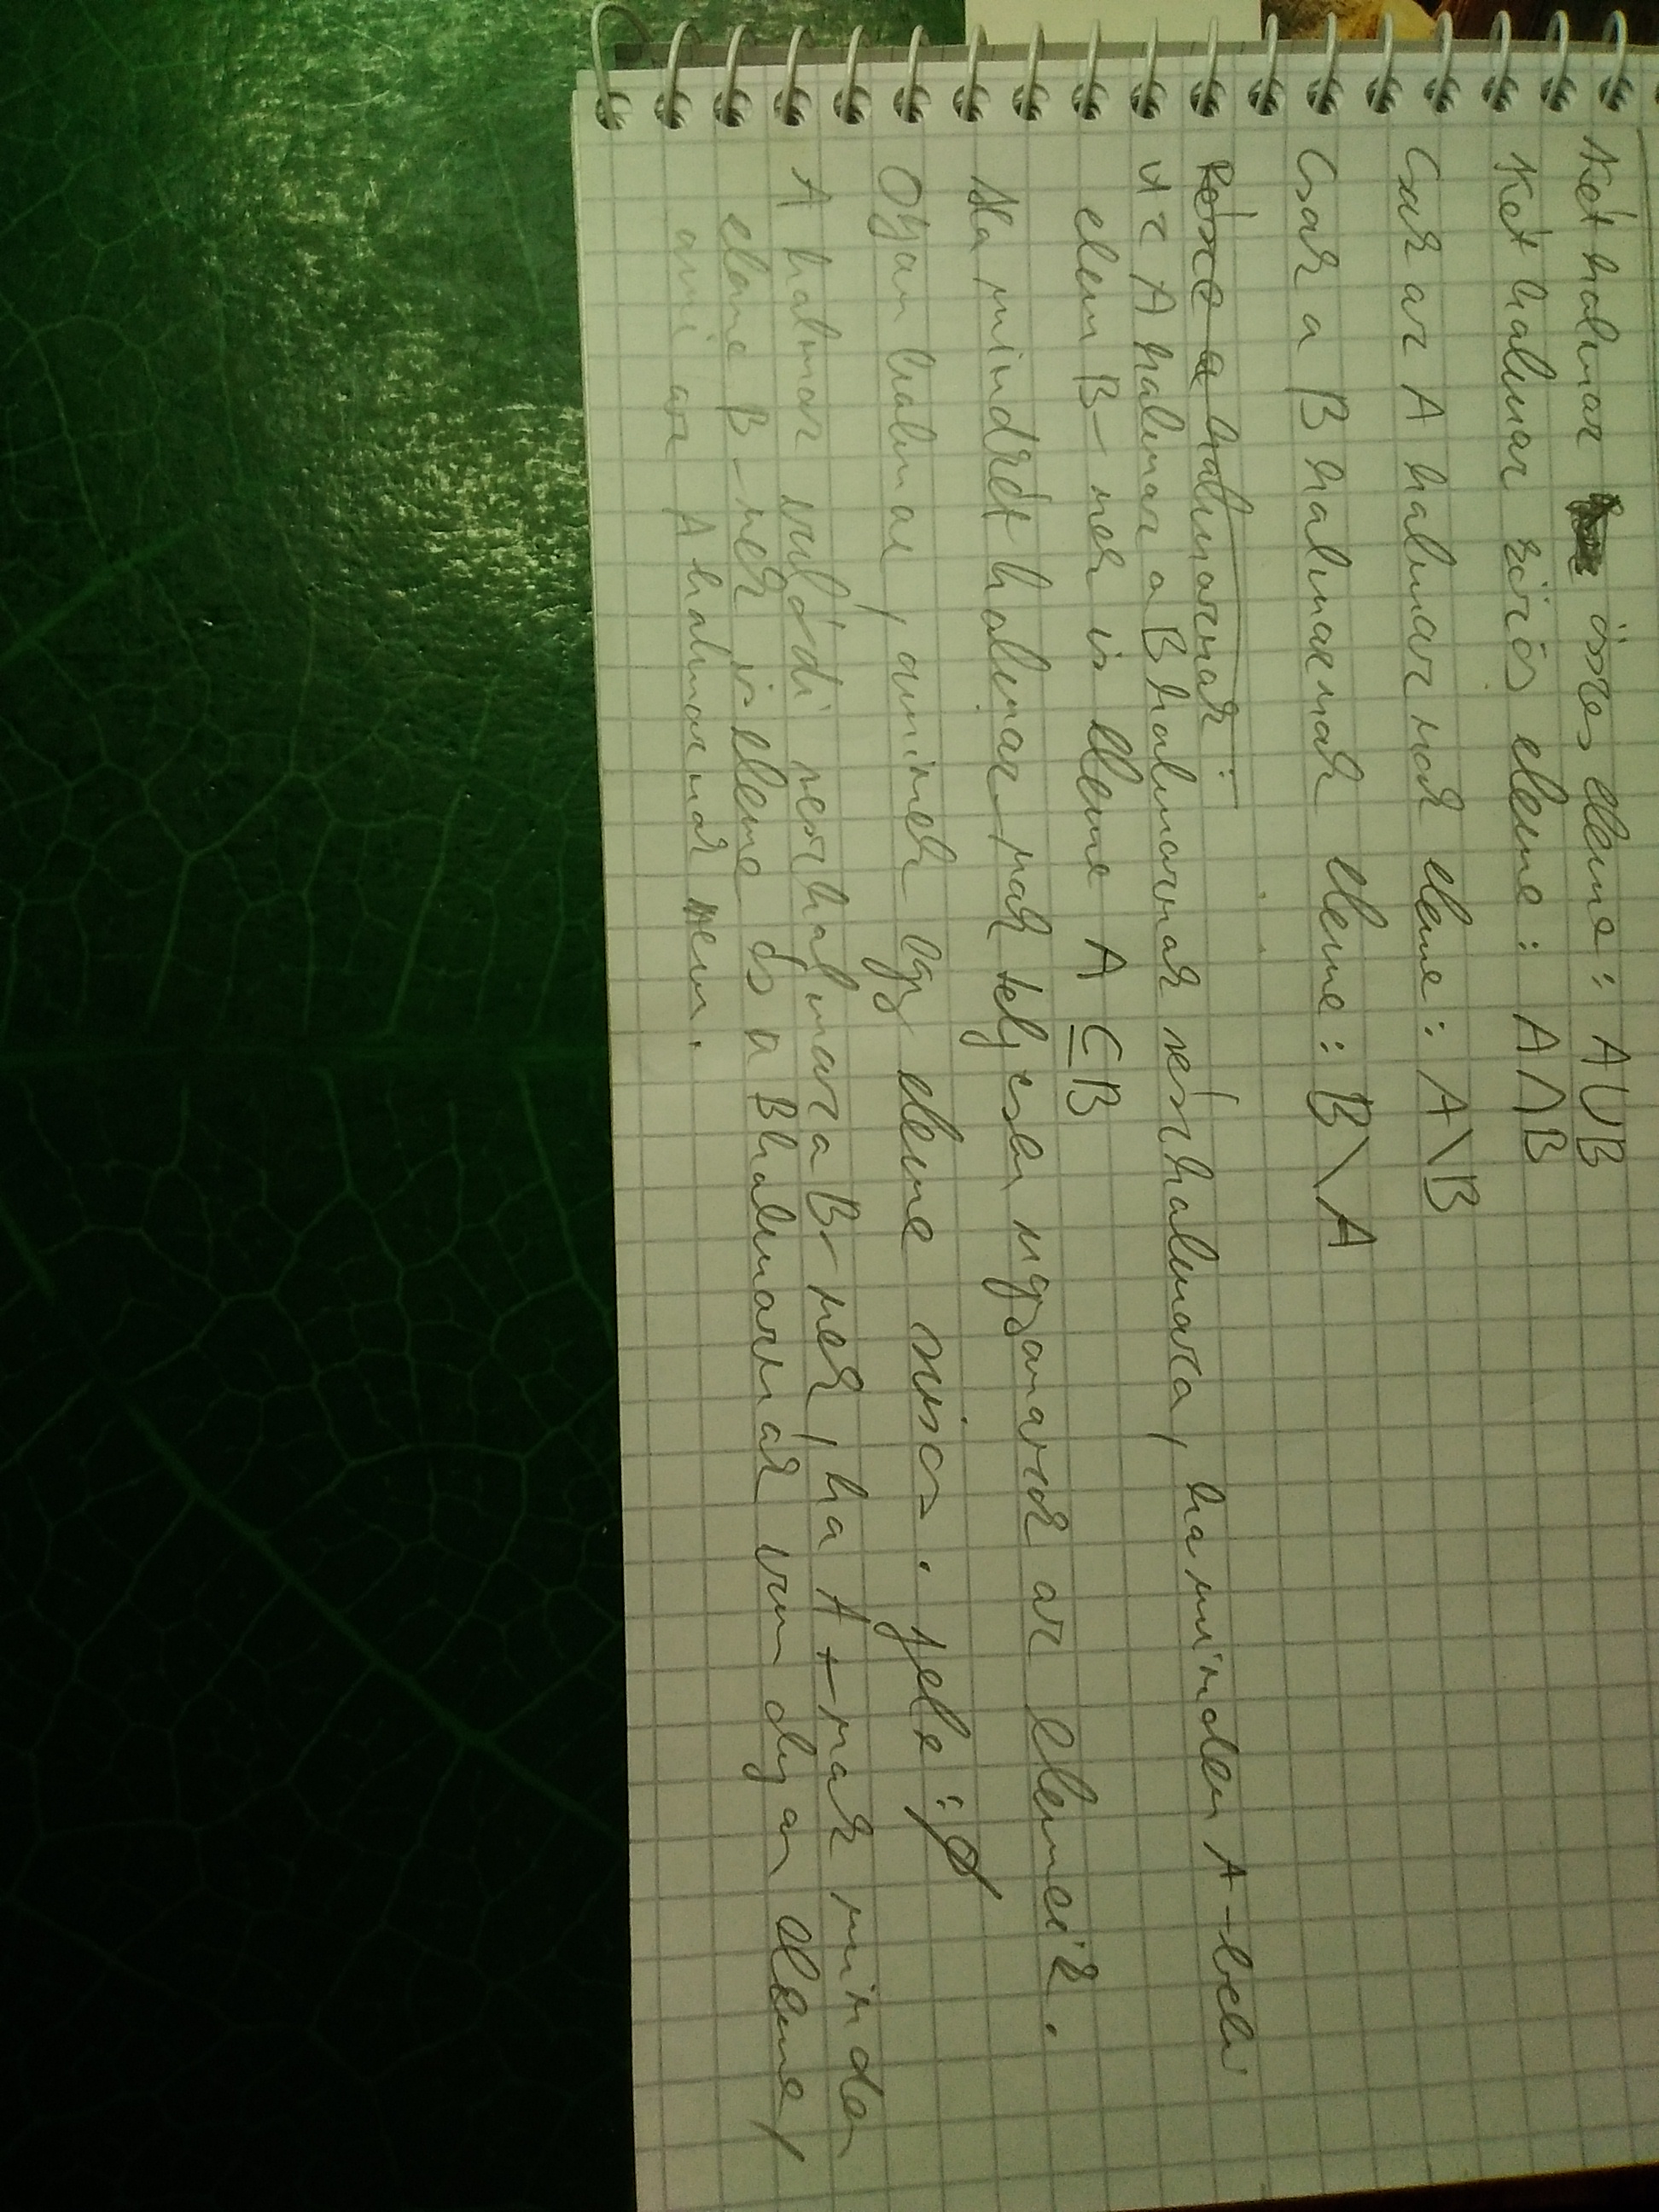 Két halmaz összes eleme: A∪B
Két halmaz közös eleme: A∩B
Csak az A halmaznak eleme: A\B
Csak a B halmaznak eleme: B\A
Része a halmaznak:
Az A halmaz a B halmaznak részhalmaza, ha minden A-beli
elem B-nek is eleme A⊆B
Ha mindkét halmaznak telj-esen ugyanazok az elemeik.
Olyan halmaz, aminek egy eleme sincs. jele: ∅
A halmaz valódi részhalmaza B-nek, ha A-nak minden
eleme B-nek is eleme és a B halmaznak van olyan eleme,
ami az A halmaznak nem.